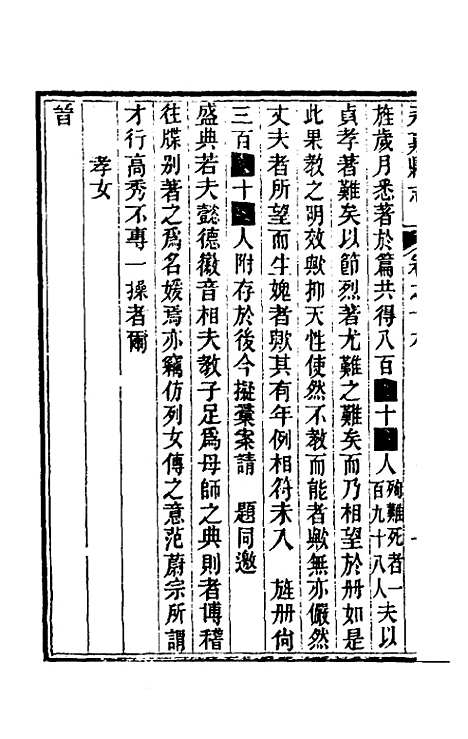 永嘉縣志 卷之十九
旌歲月悉著於篇共得八百十人殉難死者一百九十八人夫以
貞孝著難矣以節烈著尤難之難矣而乃相望於册如是
此果教之明效歟抑天性使然不教而能者歟無亦儼然
丈夫者所望而生媿者歟其有年例相符未入 旌册尙
三百十人附存於後今擬彙案請 題同邀
盛典若夫懿德徽音相夫教子足爲母師之典則者博稽
往牒别著之爲名媛焉亦竊仿列女傳之意范蔚宗所謂
才行高秀不專一操者爾
孝女
晉